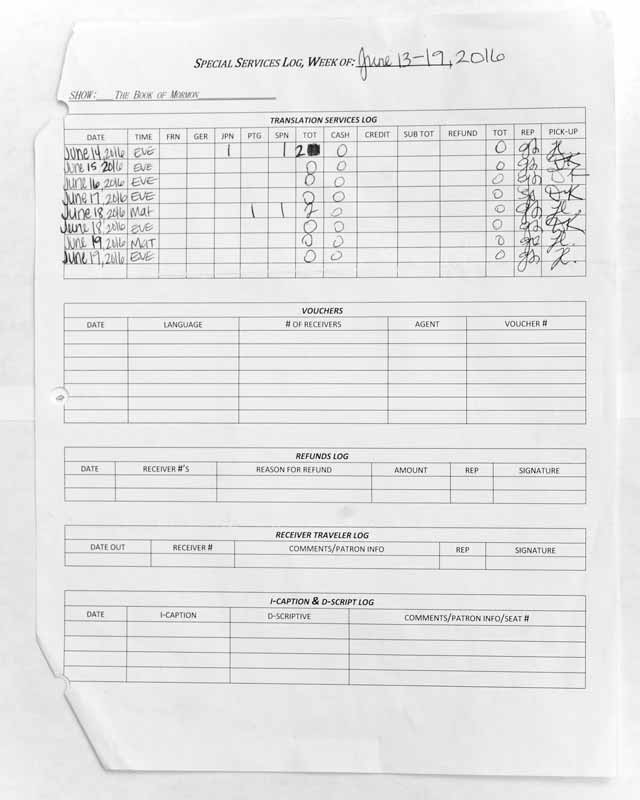 SPECIAL SERVICES LOG, WEEK OF: June 13-19, 2016
SHOW: THE BOOK OF MORMON
TRANSLATION SERVICES LOG
DATE TIME FRN GER JPN PTG SPN TOT CASH CREDIT SUB TOT REFUND TOT REP PICK-UP
June 14, 2016 EVE 1 1 2 0 0
June 15 2016 EVE 0 0 0
June 16, 2016 EVE 0 0 0
June 17, 2016 EVE 0 0 0
June 18, 2016 Mat 1 1 2 0 0
June 18, 2016 EVE 0 0 0
June 19, 2016 MAT 0 0 0
June 19, 2016 EVE 0 0 0
VOUCHERS
DATE LANGUAGE # OF RECEIVERS AGENT VOUCHER #
REFUNDS LOG
DATE RECEIVER #'S REASON FOR REFUND AMOUNT REP SIGNATURE
RECEIVER TRAVELER LOG
DATE OUT RECEIVER # COMMENTS/PATRON INFO REP SIGNATURE
I-CAPTION & D-SCRIPT LOG
DATE I-CAPTION D-SCRIPTIVE COMMENTS/PATRON INFO/SEAT #